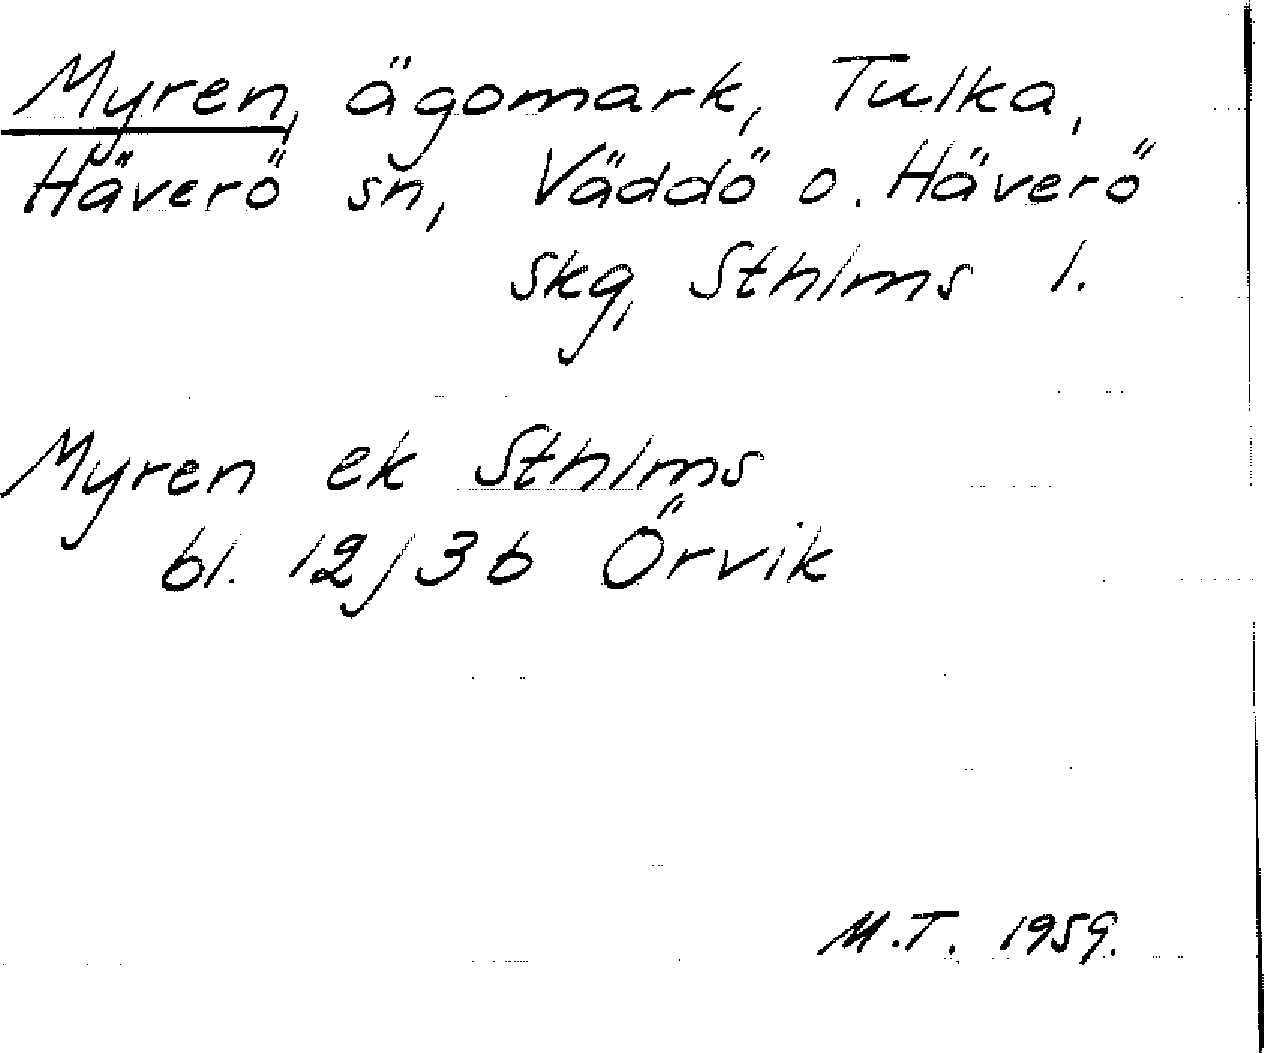 Myren, ägomark, Tulka,
Häverö sn, Väddö o. Häverö
skg, Sthlms l.
Myren ek Sthlms
bl. 12/3b Örvik
M.T. 1959.